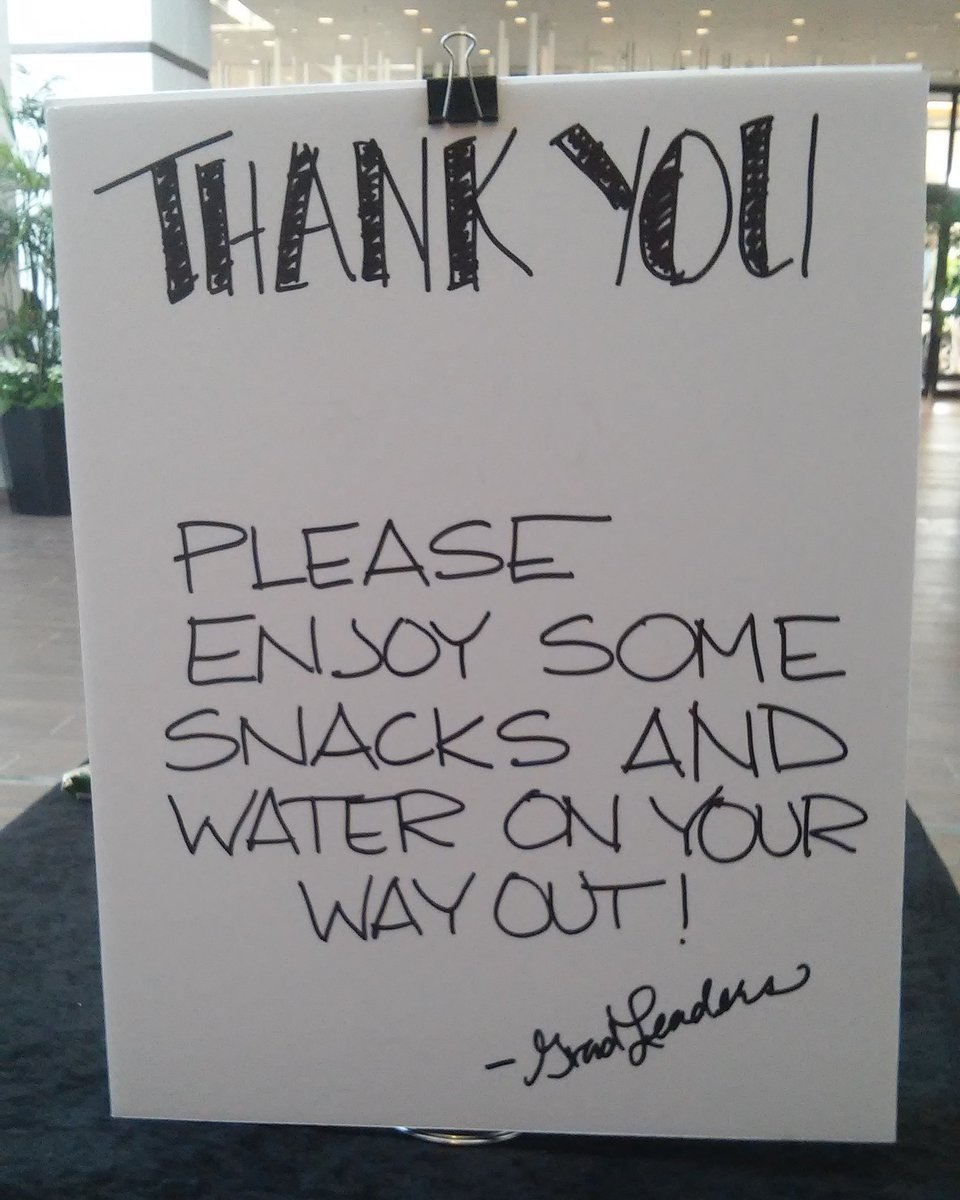 THANK YOU
PLEASE
ENJOY SOME
SNACKS AND
WATER ON YOUR
WAY OUT!
- Grad Leaders